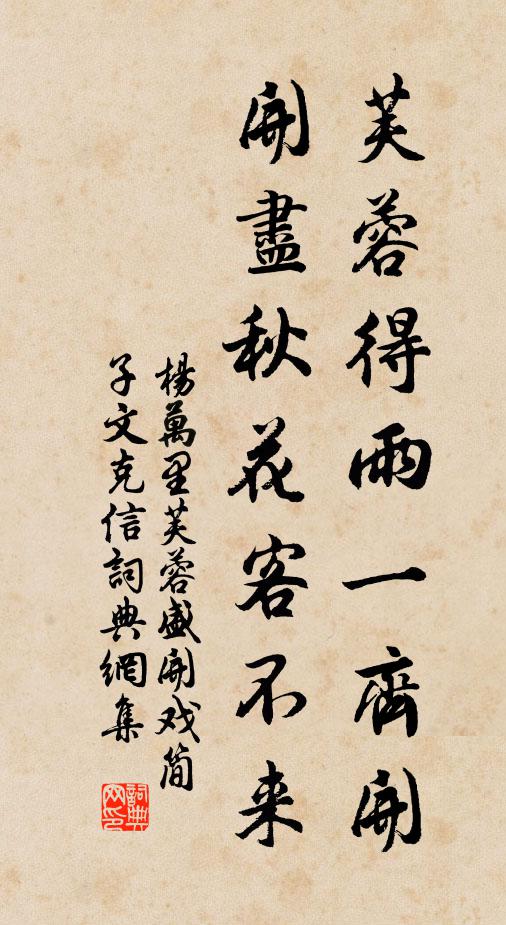 芙蓉得雨一齊開
開盡秋花客不来
楊萬里芙蓉盛開戏簡
子文克信詞典網集
詞典网印